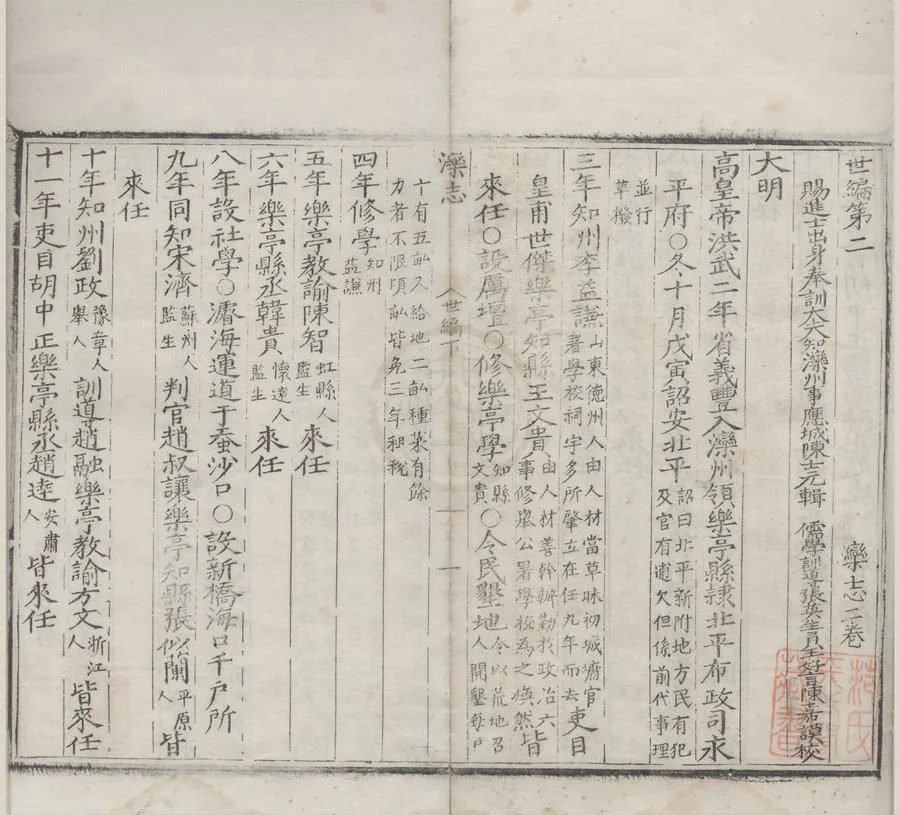 世編第二　灤志二卷
賜進士出身奉訓大夫知灤州事應城陳士元輯　儒學訓導張英生員王好言陳嘉謨校
大明
高皇帝洪武二年省義豐入灤州領樂亭縣隷北平布政司永
平府〇冬十月戊寅詔安北平詔曰北平新附地方民有犯及官有逋欠但係前代事理
並行革撥
三年知州李益謙山東德州人由人材當草昧初城墉官署學校祠宇多所肇立在任九年而去吏目
皇甫世傑樂亭知縣王文貴由人材善幹辦勤於政治六事修舉公署學校為之煥然皆
來任〇設厲壇〇修樂亭學知縣文貴〇令民墾地令以荒地召人開墾每戶
灤志　世編下　一
十有五畝又給地二畝種菜有餘力者不限頃畝皆免三年租稅
四年修學知州益謙
五年樂亭教諭陳智虹縣人監生來任
六年樂亭縣丞韓貴懷遠人監生來任
八年設社學〇濬海運道于蚕沙口〇設新橋海口千戶所
九年同知宋濟蘇州人監生判官趙叔讓樂亭知縣張似蘭平原人皆
來任
十年知州劉政豫章人舉人訓導趙融樂亭教諭方文浙江人皆來任
十一年吏目胡中正樂亭縣丞趙逵安肅人皆來任